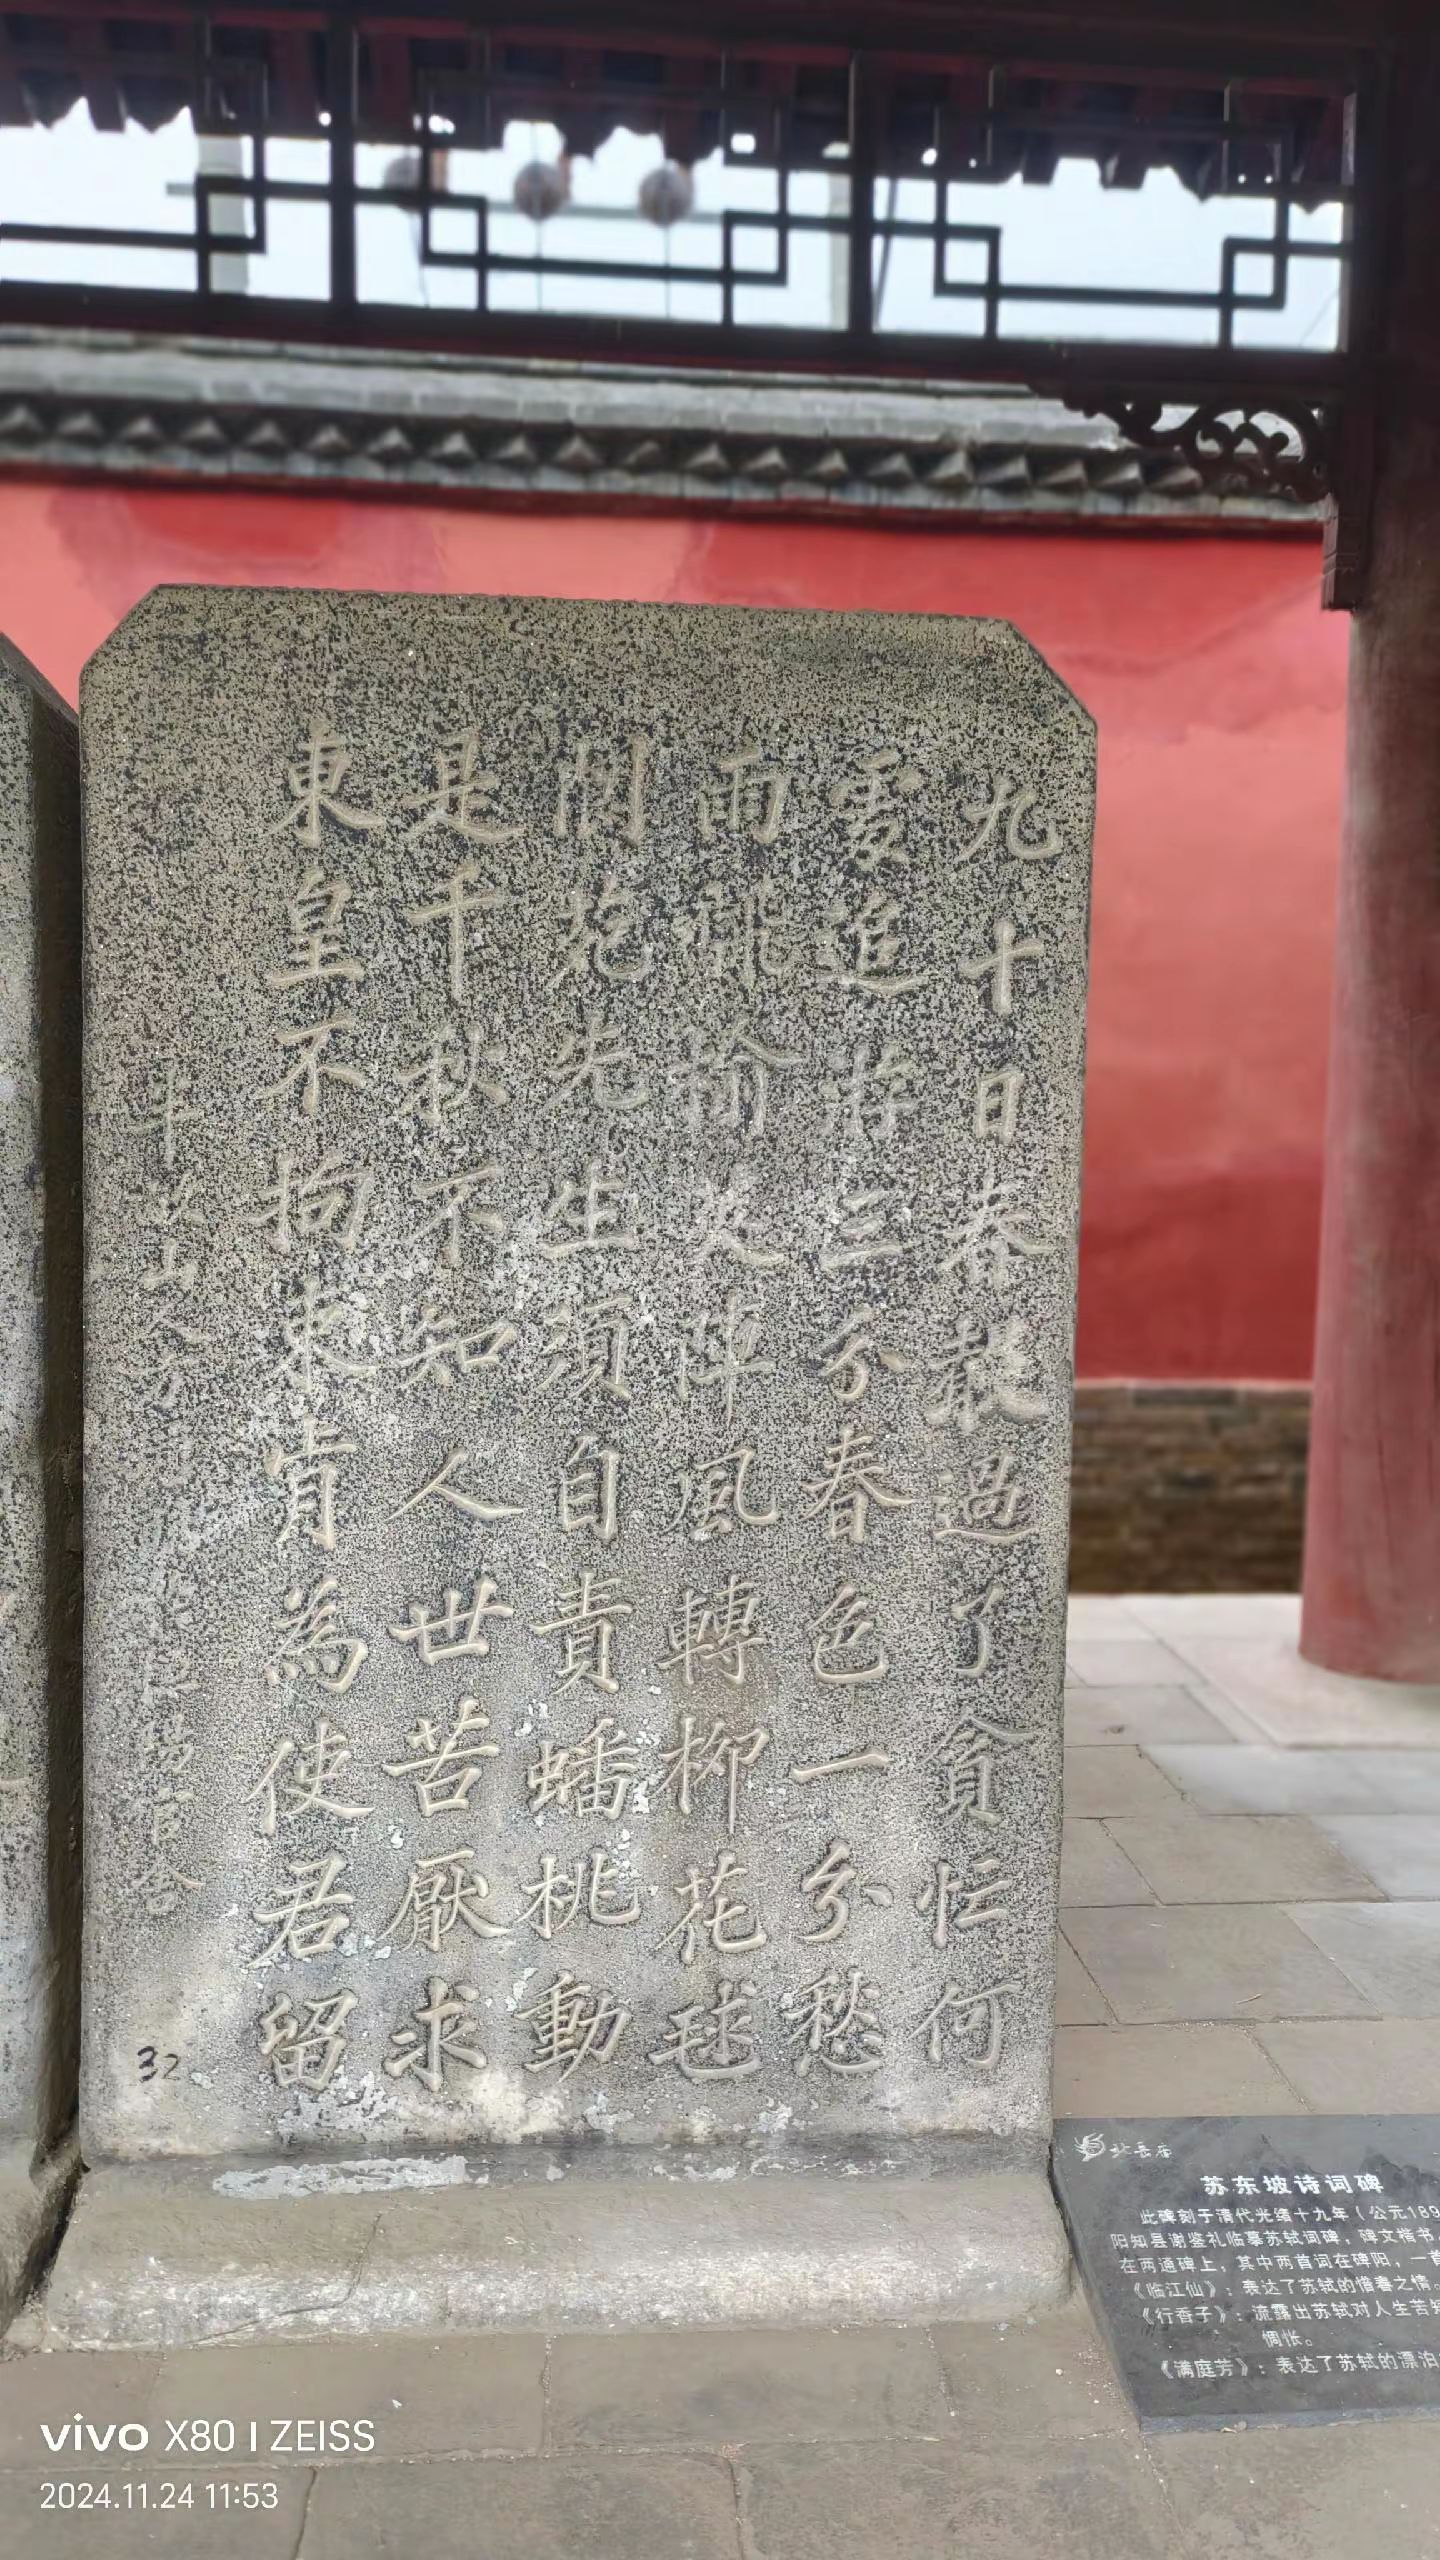 九十日春都過了貪忙何
處追游三分春色一分愁
雨飜榆英陣風轉柳花毬
閬苑先生須自責蟠桃動
是千秋不知人世苦厭求
東皇不拘束肯為使君留
山人
陽官舍
32
北岳庙
苏东坡诗词碑
此碑刻于清代光绪十九年（公元189
阳知县谢鉴礼临摹苏轼词碑，碑文楷书，
在两通碑上，其中两首词在碑阳，一首
《临江仙》：表达了苏轼的惜春之情。
《行香子》：流露出苏轼对人生苦短
惆怅。
《满庭芳》：表达了苏轼的漂泊
vivo X80 | ZEISS
2024.11.24 11:53